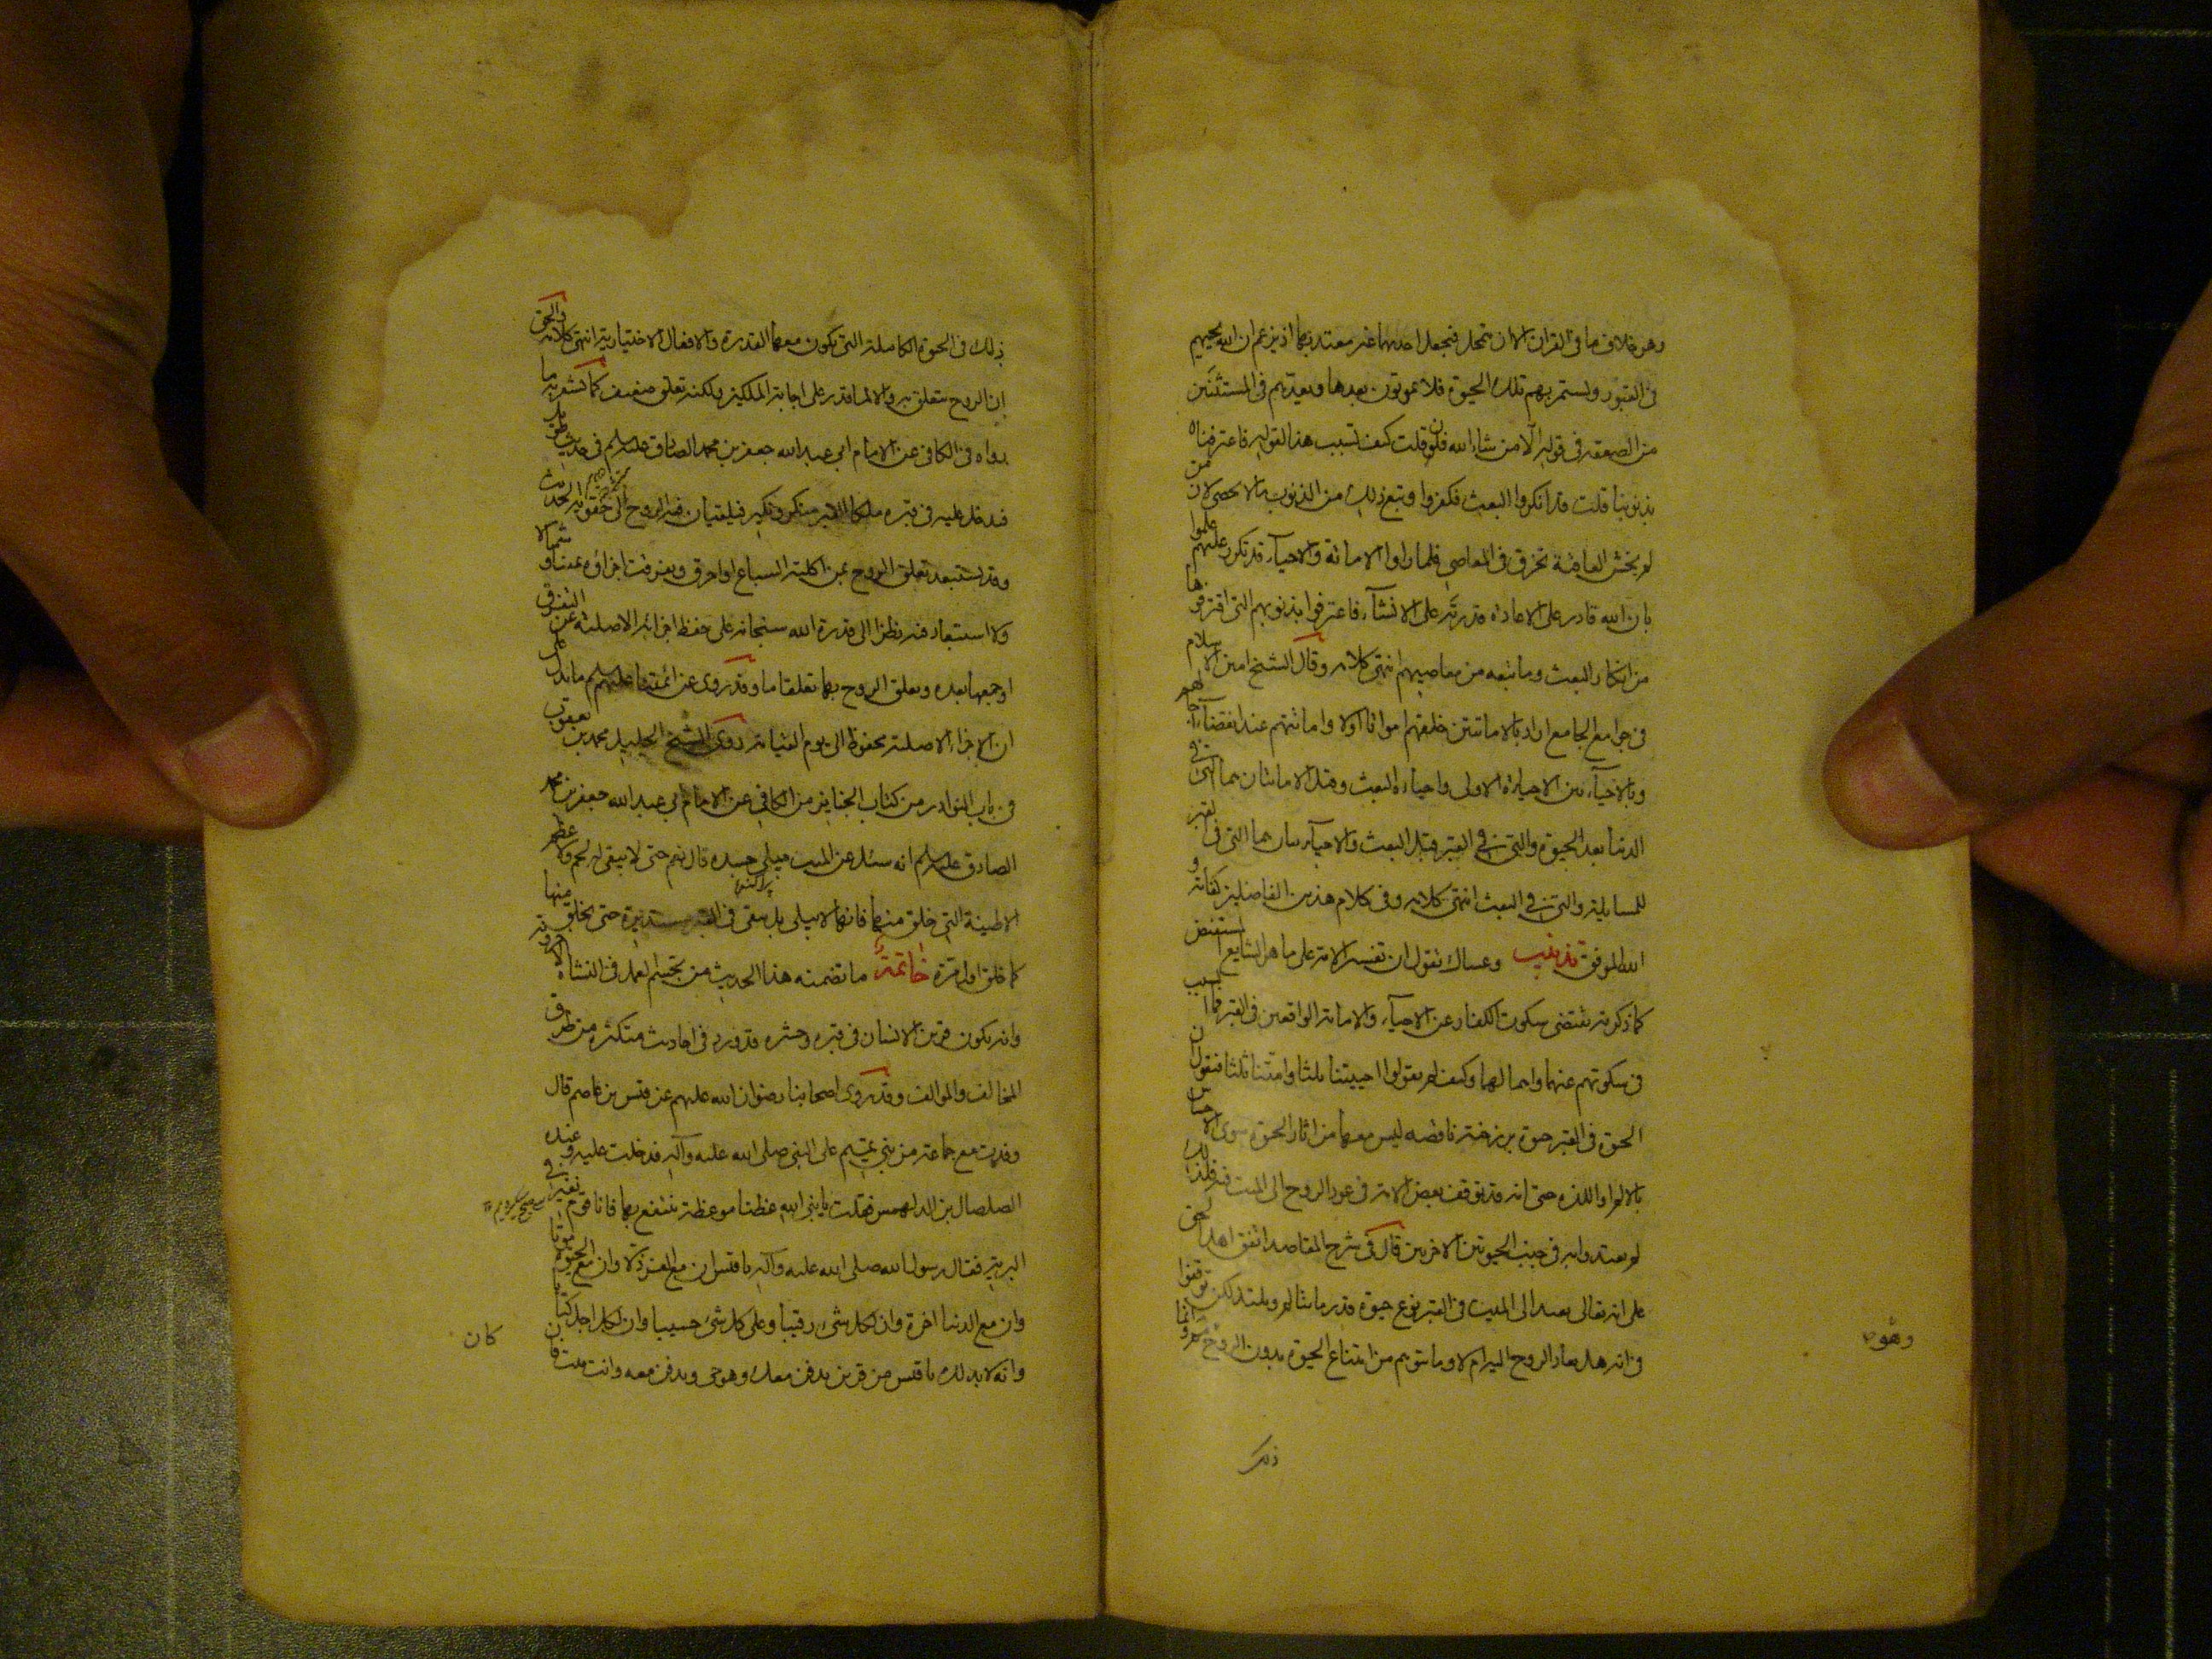 وهو خلاف ما في القران الا ان يتمحل فيجعل احديهما غير معتد بها اذ يزعم ان الله يحييهم
في القبور ويستمر بهم تلك الحيوة فلا يموتون بعدها ويعدّهم في المستثنين
من الصعقه في قوله الّا من شاء الله فان قلت كيف تسبب هذا لقوله فاعترفنا
بذنوبنا قلت قد انكروا البعث فكفروا وتبع ذلك من الذنوب ما لا يحصى لان من
لم يخش العاقبة تخرق في المعاصي فلما راوا الاماتة والاحياء قد تكرر عليهم علموا
بان الله قادر على الاعادة قدرته على الانشاء فاعترفوا بذنوبهم التي اقترفوها
من انكار البعث وما تبعه من معاصيهم انتهى كلامه وقال الشيخ امين الاسلام
في جوامع الجامع اراد بالاماتتين خلقهم امواتا اولا واماتتهم عند انقضاء اجالهم
وبالاحياءتين الاحياءة الاولى واحياءة البعث وقيل الاماتتان هما التي في
الدنيا بعد الحيوة والتي في القبر قبل البعث والاحياءتان هما التي في القبر
للمسايلة والتي في البعث انتهى كلامه وفي كلام هذين الفاضلين كفاية و
الله الموفق تذنيب وعساك تقول ان تفسير الاية على ما هو الشايع المستفيض
كما ذكرته تقتضي سكوت الكفار عن الاحياء والاماتة الواقعين في القبر فما السبب
في سكوتهم عنهما واهمالهما وكيف لم يقولوا احييتنا ثلثا وامتنا ثلثا فنقول ان
الحيوة في القبر حيوة برزخية ناقصه ليس معها من اثار الحيوة سوى الاحساس
بالالم واللذه حتى انه قد توقف بعض الامة في عود الروح الى الميت فيه فلذلك
لم يعتدوا به في جنب الحيوتين الاخريين قال في شرح المقاصد اتفق اهل الحق
على انه تعالى يعيد الى الميت في القبر نوع حيوة قدر ما يتالم ويلتذ لكن توقفوا
في انه هل يعاد الروح اليه ام لا وما يتوهم من امتناع الحيوة بدون الروح ممنوع وانما
ذلك
وهو
ذلك في الحيوة الكاملة التي تكون معها القدرة والافعال الاختيارية انتهى كلامه والحق
ان الروح يتعلق به والا لما قدر على اجابة الملكين ولكنه تعلق ضعيف كما يشعر به ما
رواه في الكافي عن الامام ابي عبد الله جعفر بن محمد الصادق عليه السلم في حديث طويل
فيدخل عليه في قبره ملكا القبر منكر ونكير فيلقيان فيه الروح الى حقويه الحديث
وقد يستبعد تعلق الروح بمن اكلته السباع او احرق وتفرقت اجزاؤه يمينا وشمالا
ولا استبعاد فيه نظرا الى قدرة الله سبحانه على حفظ اجزائه الاصلية عن التفرق
او جمعها بعده وتعلق الروح بها تعلقا ما وقد روى عن ائمتنا عليهم السلم ما يدل على
ان الاجزاء الاصلية محفوظة الى يوم القيامة روى الشيخ الجليل محمد بن يعقوب
في باب النوادر من كتاب الجنايز من الكافي عن الامام ابي عبد الله جعفر بن محمد
الصادق عليه السلم انه سئل عن الميت يبلى جسده قال نعم حتى لا يبقى له لحم ولا عظم
الا طينة التي خلق منها فانها لا يبلى بل يبقى في القبر مستديرة حتى يخلق منها
كما خلق اول مرة خاتمة ما تضمنه هذا الحديث من تجسم العمل في النشاة الاخروية
وانه يكون قرين الانسان في قبره وحشره قد ورد في احاديث متكثره من طرق
المخالف والموالف وقد روى اصحابنا رضوان الله عليهم عن قيس بن عاصم قال
وفدت مع جماعة من بني تميم على النبي صلى الله عليه وآله فدخلت عليه وعنده
الصلصال بن الدلهمس فقلت يا نبي الله عظنا موعظة ننتفع بها فانا قوم نعير في
البرية فقال رسول الله صلى الله عليه وآله يا قيس ان مع العز ذلا وان مع الحيوة موتا
وان مع الدنيا اخرة وان لكل شيء رقيبا وعلى كل شيء حسيبا وان لكل اجل كتابا
وانه لا بد لك يا قيس من قرين يدفن معك وهو حي وتدفن معه وانت ميت فان
كان